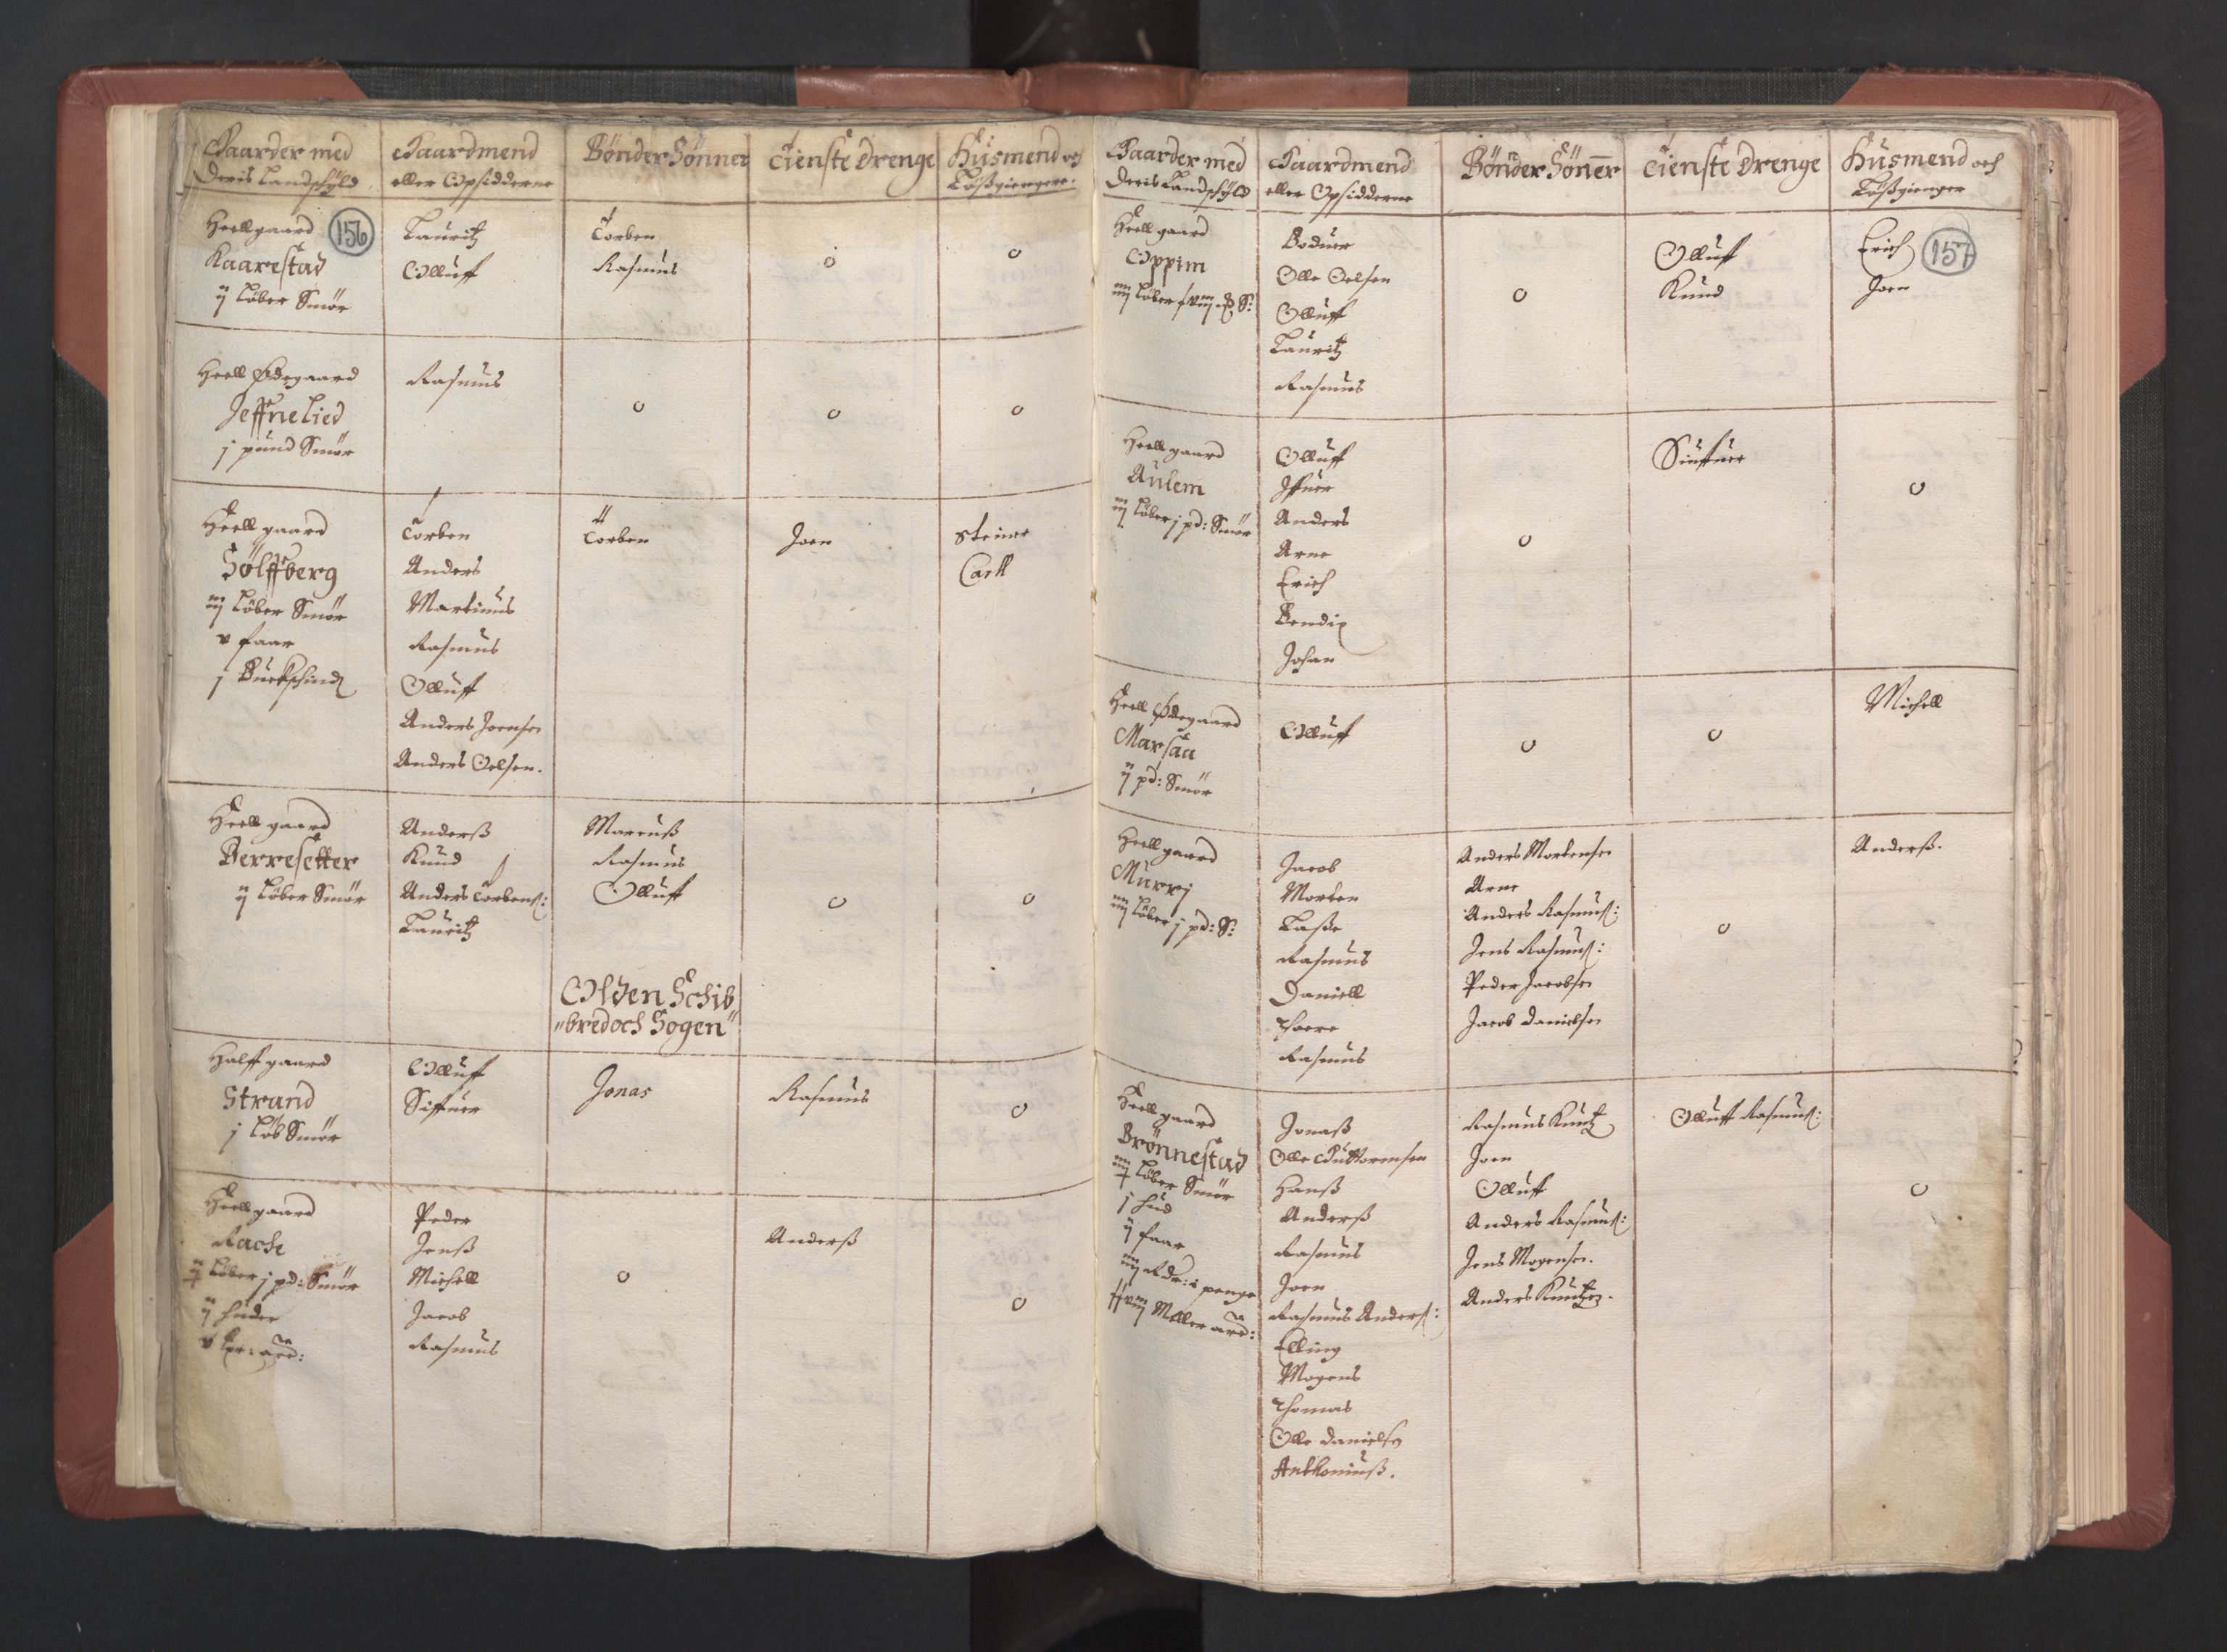 Gaarder med
Deris Landschyld
Gaardmend
eller Opsidderne
Bønder Sønner
Tienste Drenge
Husmend och
Løsgiengere.
156
Heell gaard
Kaarestad
ij Løber Smør
Lauritz
Olluff
Torben
Rasmus
o
o
Heell Ødegaard
Jeffne Lied
j pund Smør
Rasmus
o
o
o
Heell gaard
Sølffberg
iij Løber Smør
v faar
j Buckschind
Torben
Anders
Martinus
Rasmus
Olluff
Anders Joensen
Anders Oelsen.
Torben
Joen
Steiner
Carll
Heell gaard
Berresetter
ij Løber Smør
Anderß
Knud
Anders Torbens:
Lauritz
Marcuß
Rasmus
Olluff
o
o
Olden Schib
"bredoch Sogen"
Halff gaard
Strand
j Løb Smør
Olluff
Siffuer
Jonas
Rasmus
o
Heell gaard
Rache
Løber j pd: Smør
ij huder
Peder
Jenß
Michell
Jacob
Rasmus
o
Anderß
o
Gaarder med
Deris Landschyld
Gaardmend
eller Opsidderne
Bønder Sønner
Tienste Drenge
Husmend och
Løßgienger
157
Heell gaard
Oppim
iiij Løber
Boduer
Olle Oelsen
Olluff
Lauritz
Rasmus
o
Olluff
Knud
Erich
Joen
Heell gaard
Aulem
iij Løber j pd: Smør
Olluff
Iffuer
Anders
Arne
Erich
Bendix
Johan
o
Siuffuer
o
Heell Ødegaard
Marsaa
ij pd: Smør
Olluff
o
o
Michell
Heell gaard
Murri
iiij Løber j pd: S:
Jacob
Morten
Laße
Rasmus
Daniell
Thore
Rasmus
Anders Mortensen
Arne
Anders Rasmus:
Jens Rasmus:
Peder Jacobsen
Jacob Danielsen
o
Anderß.
Heell gaard
Brønnestad
Løber Smør
j hud
ij faar
iij Rdr: i penge
Jonaß
Olle Guttormsen
Hanß
Anderß
Rasmus
Joen
Rasmus Anders:
Elling
Mogens
Thomas
Olle Danielsen
Anthoniuß.
Rasmus Knutz
Joen
Olluff
Anders Rasmus:
Jens Mogensen.
Anders Knutzen.
Olluff Rasmus:
o